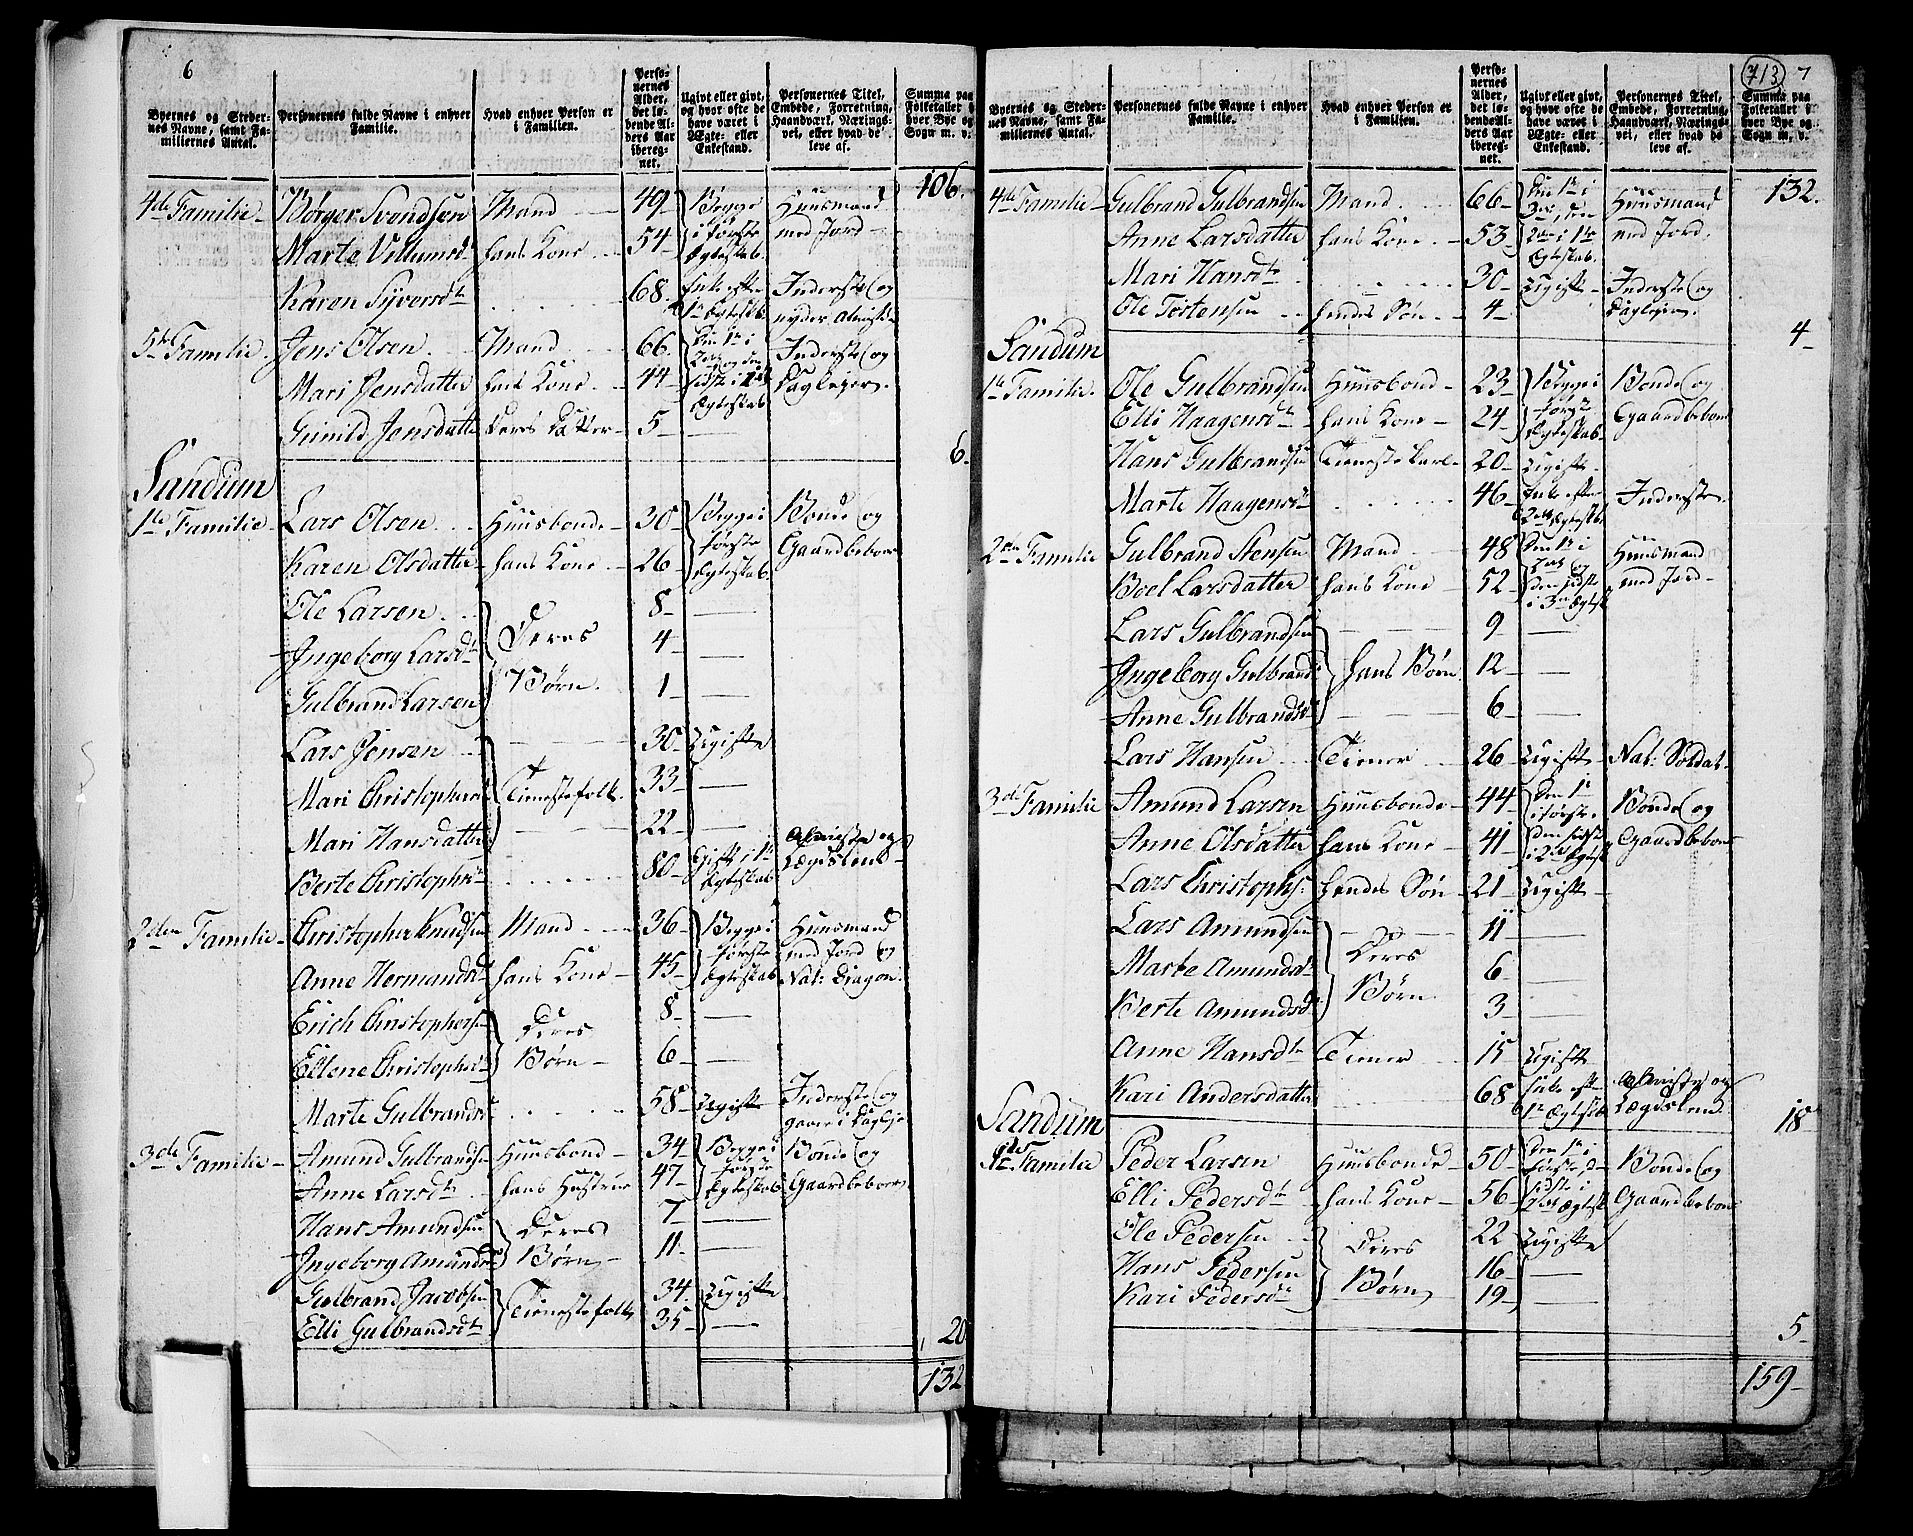 6
Byernes og Stedernes Navne, samt Familiernes Antal.
Personernes fulde Navne i enhver Familie.
Hvad enhver Person er i Familien.
Personernes Alder, det løbende Alders Aar iberegnet.
Ugivt eller givt, og hvor ofte de have været i Ægte- eller Enkestand.
Personernes Titel, Embede, Forretning, Haandværk, Næringsvei, eller hvad de leve af.
Summa paa Folketallet i hver Bye og Sogn m. v.
106.
4de Familie Børger Svendsen Mand 49 Begge Huusmand
Marte Villumsd hans Kone 54 i første Ægteskab. med Jord
Karen Syversdtr 68 Enke efter 1te Ægteskab Inderste og nyder Almisse
5te Familie Jens Olsen Mand 66 Den 1te i Inderste og
Mari Jensdatter hans Kone 44 2det og den sidste i 1te Ægteskab Dagleier.
Gunild Jensdatter Deres Datter 5
6.
Sandum
1te Familie Lars Olsen Huusbonde 30 Begge i Bonde og
Karen Olsdatter hans Kone 26 første Ægteskab. Gaardbeboer
Ole Larsen 8
Ingeborg Larsdtr Deres 4
Gulbrand Larsen Børn. 1
Lars Jensen 30 Ugifte
Mari Christophersd Tienestefolk. 33
Mari Hansdatter 22
Berte Christophersdtr 80 Gift i 1te Ægteskab Almisse og Lægdslem
2den Familie Christopher Knudsen Mand 36 Begge i Huusmand
Anne Hermandsdtr hans Kone 45 første Ægteskab med Jord og Nat: Dragon.
Erich Christophersen Deres 8
Ellene Christophersdtr Børn 6
Marte Gulbrandsd 58 Ugift Inderste og gaaer i Dagleje
3de Familie Amund Gulbrandsen Huusbond 34 Begge i Bonde og
Anne Larsdtr hans Hustrue 47 første Ægteskab Gaardbeboer
Hans Amundsen Deres 7
Ingeborg Amundsd Børn 11
Gulbrand Jacobsen Tienestefolk 34. Ugifte
Elli Gulbrandsdtr 35
20
132
713 7
Byernes og Stedernes Navne, samt Familiernes Antal.
Personernes fulde Navne i enhver Familie.
Hvad enhver Person er i Familien.
Personernes Alder, det løbende Alders Aar iberegnet.
Ugivt eller givt, og hvor ofte de have været i Ægte- eller Enkestand.
Personernes Titel, Embede, Forretning, Haandværk, Næringsvei, eller hvad de leve af.
Summa paa Folketallet i hver Bye og Sogn m. v.
132.
4de Familie Gulbrand Gulbrandsen Mand 66 Den 1te i Huusmand
Anne Larsdatter hans Kone 53 2den i 1te Ægteskab. med Jord,
Mari Hansdtr 30 Ugift Inderste og
Ole Tostensen hendes Søn 4 Dagleier.
4
Sandum
1te Familie. Ole Gulbrandsen Huusbond 23 Begge i Bonde og
Elli Haagensdtr hans Kone 24 første Ægteskab Gaardbeboer
Hans Gulbrandsen Tieneste Karl 20 Ugift
Marte Haagensdtr 46 Enke efter 2det Ægteskab Inderste.
2den Familie Gulbrand Stensen Mand 48 Den 1te i Huusmand
Boel Larsdatter hans Kone 52 2det og den sidste i 3die Ægtesk med Jord
Lars Gulbrandsen 9
Ingeborg Gulbrandsd hans Børn 12
Anne Gulbrandsd 6
Lars Hansen Tiener 26 Ugift Nat: Soldat.
3de Familie Amund Larsen Huusbonde 44 Den 1te i første, Bonde og
Anne Olsdatter hans Kone 41 den sidste i 2det Ægtesk Gaardbeboer
Lars Christophs: hendes Søn 21 Ugift
Lars Amundsen Deres 11
Marte Amundsdtr 6
Berte Amundsd Børn 3
Anne Hansdtr Tiener 15 Ugift
Kari Andersdatter 68 Enke efter 1te Ægtesk Almisse og Lægdslem.
18
Sandum
1te Familie Peder Larsen Huusbonde 50 Den 1te i første, d Bonde og
Elli Pedersdtr hans Kone 56 sidste i 2det Ægtesk Gaardbeboer
Ole Pedersen Deres 22 Ugifte
Hans Pedersen 16
Kari Pedersdtr Børn 19
5
159